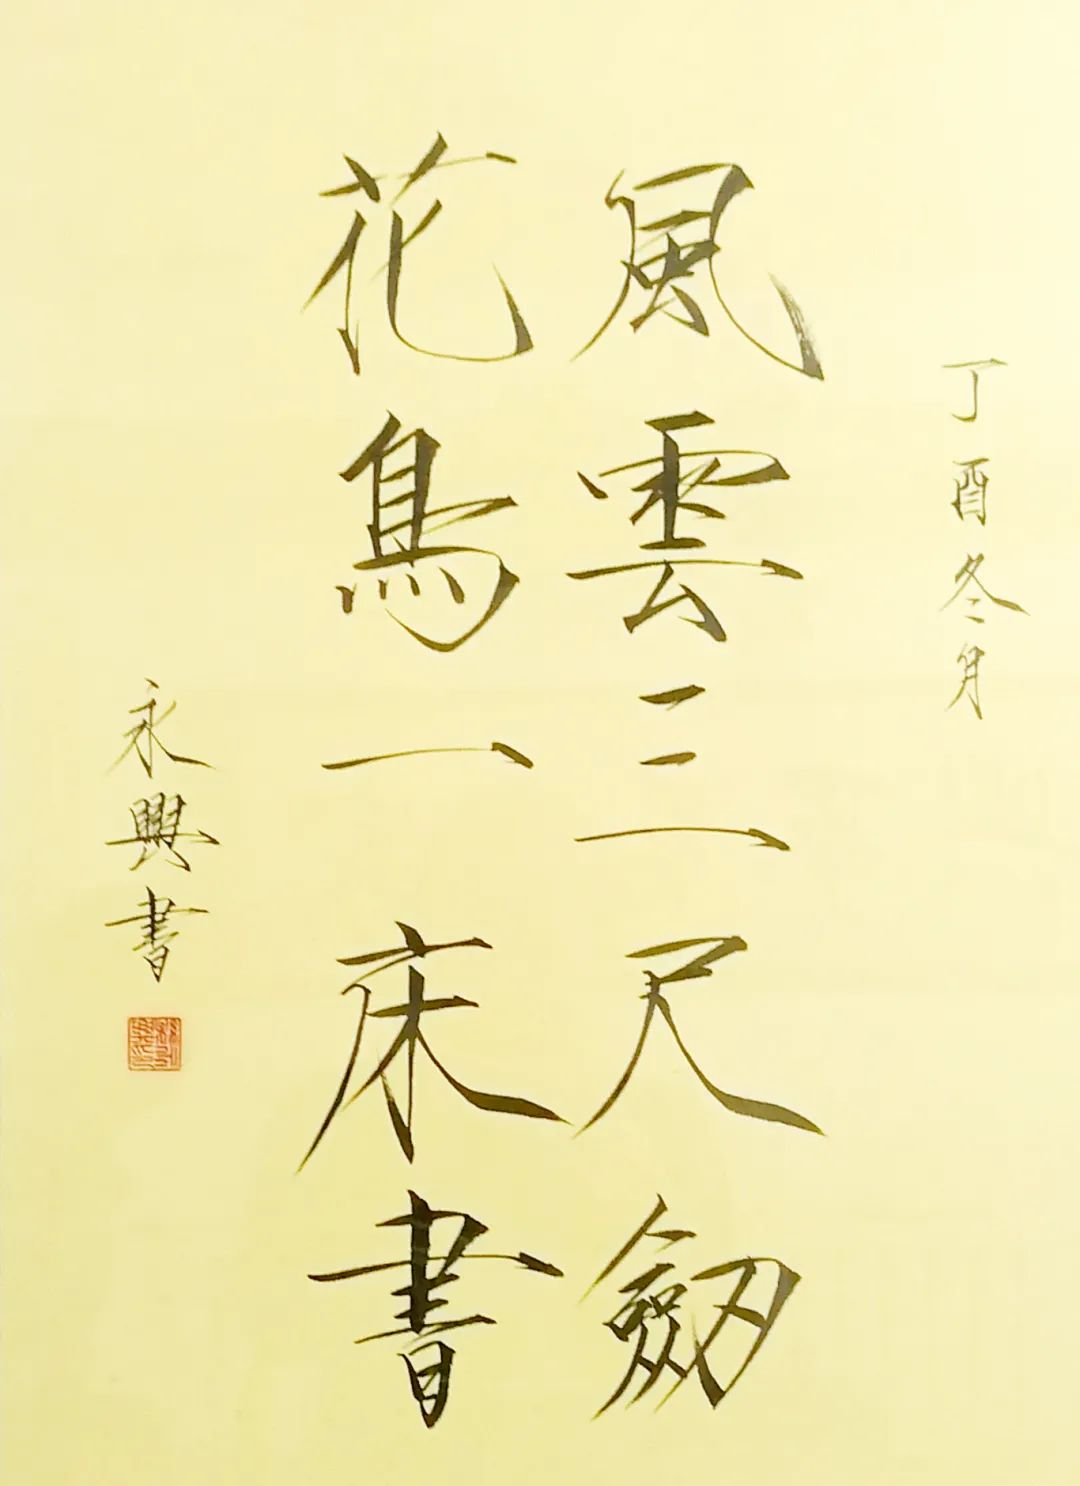 丁酉冬月
風雲三尺劒
花鳥一床書
永興書